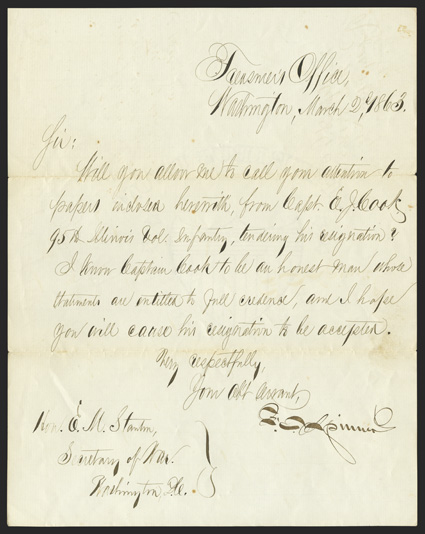 Treasurer's Office,
Washington, March 2, 1863.
Sir:
Will you allow me to call your attention to
papers inclosed herewith, from Capt. E. J. Cook
95th Illinois Vol. Infantry, tendering his resignation?
I know Captain Cook to be an honest man whose
statements are entitled to full credence, and I hope
you will cause his resignation to be accepted.
Very respectfully,
Your obt servant,
F. E. Spinner
Hon. E. M. Stanton,
Secretary of War.
Washington, D.C.